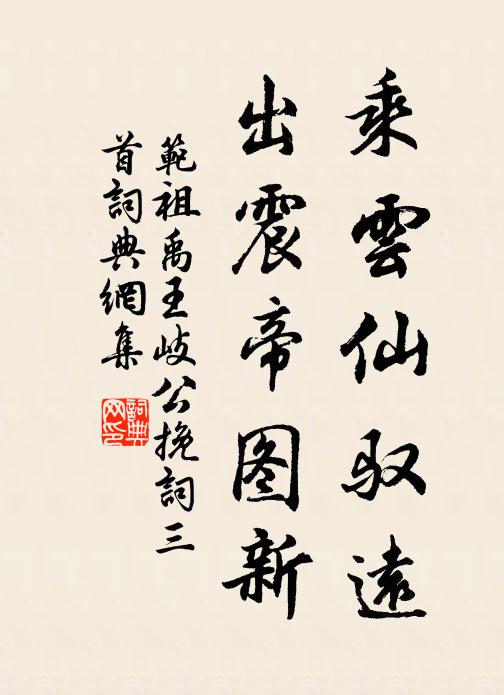 乘雲仙馭遠
出震帝图新
範祖禹王岐公挽詞三
首詞典網集
詞典
网印